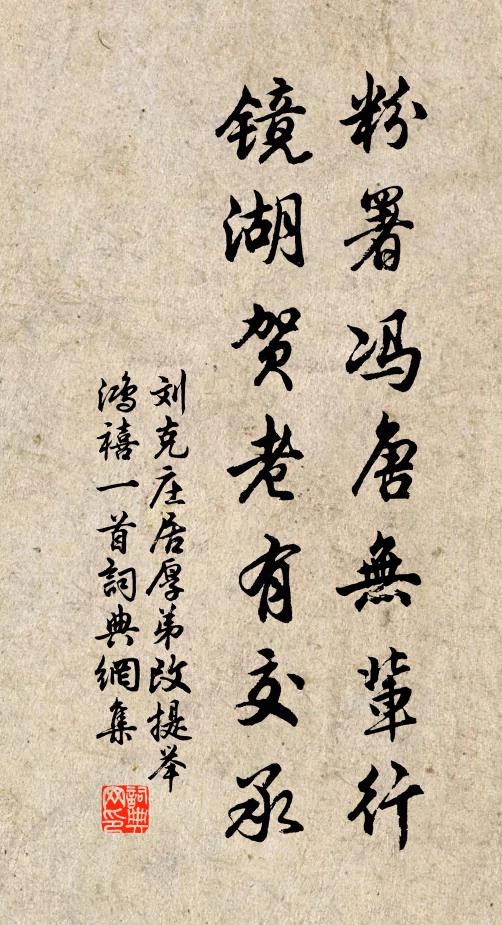 粉署冯唐無輩行
镜湖贺老有交承
刘克庄居厚弟改提举
鸿禧一首詞典網集
詞典
网印